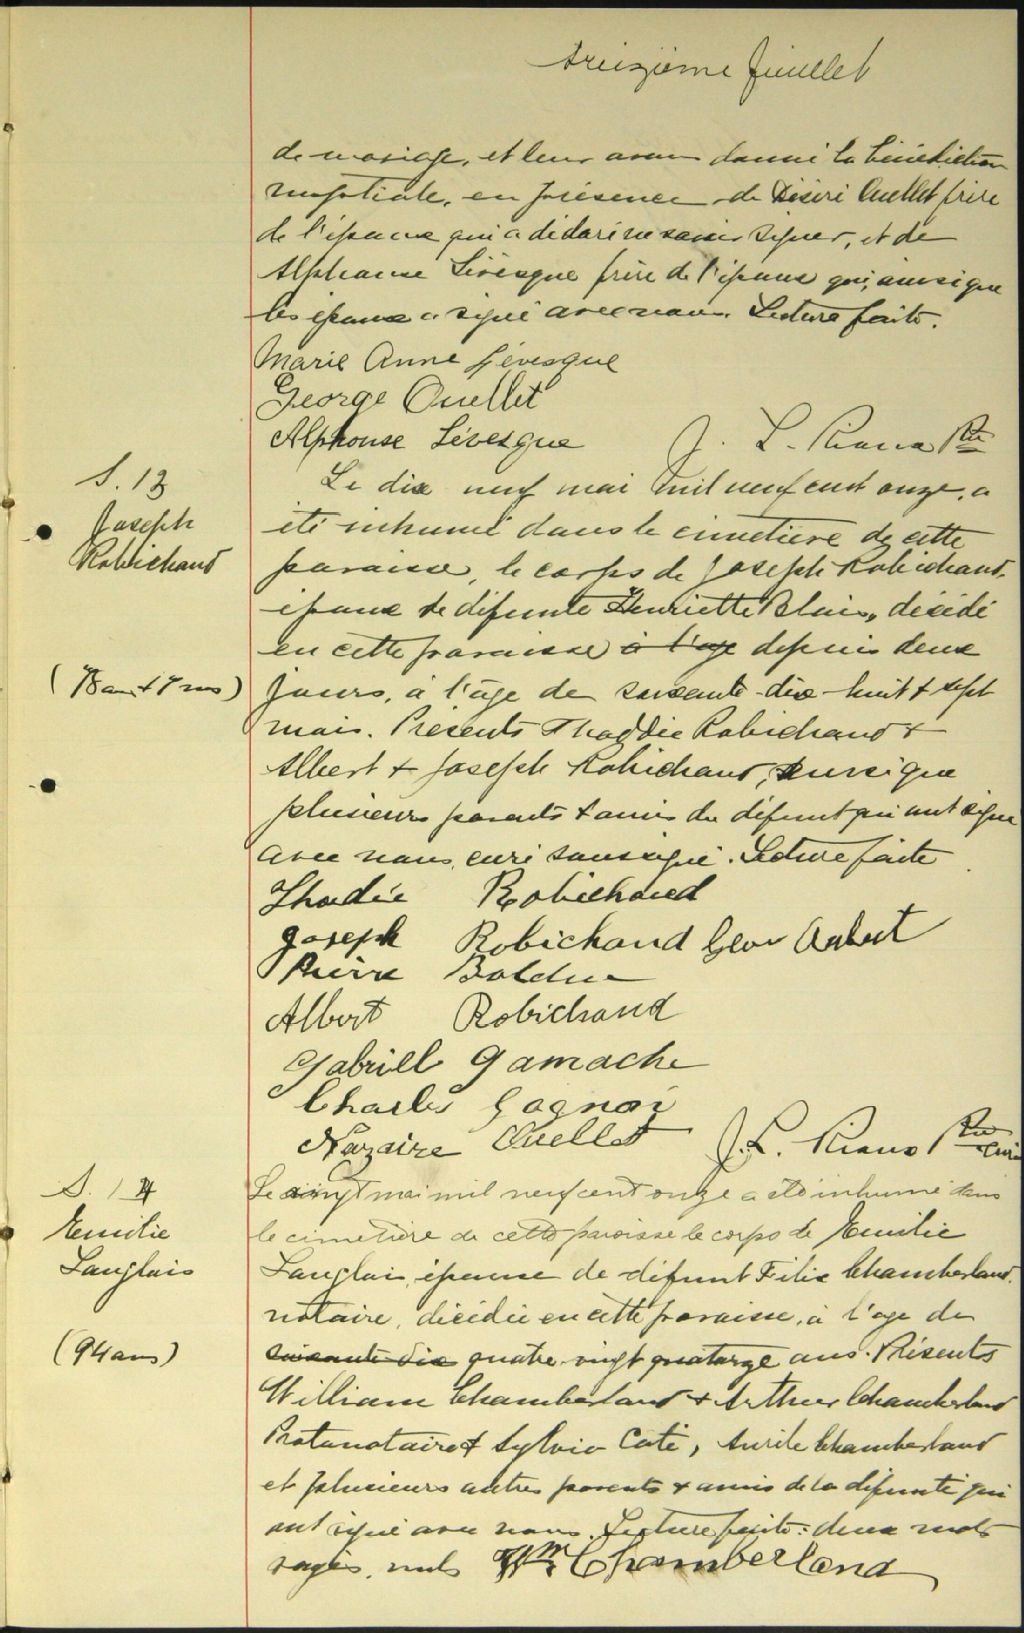 treizième feuillet
de mariage, et leur avons donné la bénédiction
nuptiale, en présence de Désiré Ouellet frère
de l'époux qui a déclaré ne savoir signer, et de
Alphonse Lévesque frère de l'épouse qui, ainsi que
les époux a signé avec nous. Lecture faite.
Marie Anne Lévesque
George Ouellet
Alphonse Lévesque J. L. Ptre
S. 13
Joseph
Robichaud
(78 ans + 7 ms)
Le dix neuf mai mil neuf cent onze, a
été inhumé dans le cimetière de cette
paroisse, le corps de Joseph Robichaud,
époux de défunte Henriette Blais, décédé
en cette paroisse à l'age depuis deux
jours, à l'âge de soixante-dix-huit + sept
mois. Présents Thaddée Robichaud +
Albert + Joseph Robichaud, ainsi que
plusieurs parents + amis du défunt qui ont signé
avec nous, curé soussigné. Lecture faite
Thadée Robichaud
Joseph Robichaud Geo Aubut
Pierre Bolduc
Albert Robichaud
Gabriell Gamache
Charles Gagnon
Nazaire Ouellet J. L. Ptre curé
S. 14
Emilie
Langlais
(94 ans)
Le vingt mai mil neuf cent onze a été inhumé dans
le cimetière de cette paroisse le corps de Emilie
Langlais, épouse de défunt Félix Chamberland,
notaire, décédée en cette paroisse, à l'age de
soixante-dix quatre-vingt quatorze ans. Présents
William Chamberland + Arthur Chamberland
Protonotaire + Sylvio Coté, Chamberland
et plusieurs autres parents + amis de la défunte qui
ont signé avec nous. Lecture faite: deux mots
rayés, nuls Wm Chamberland